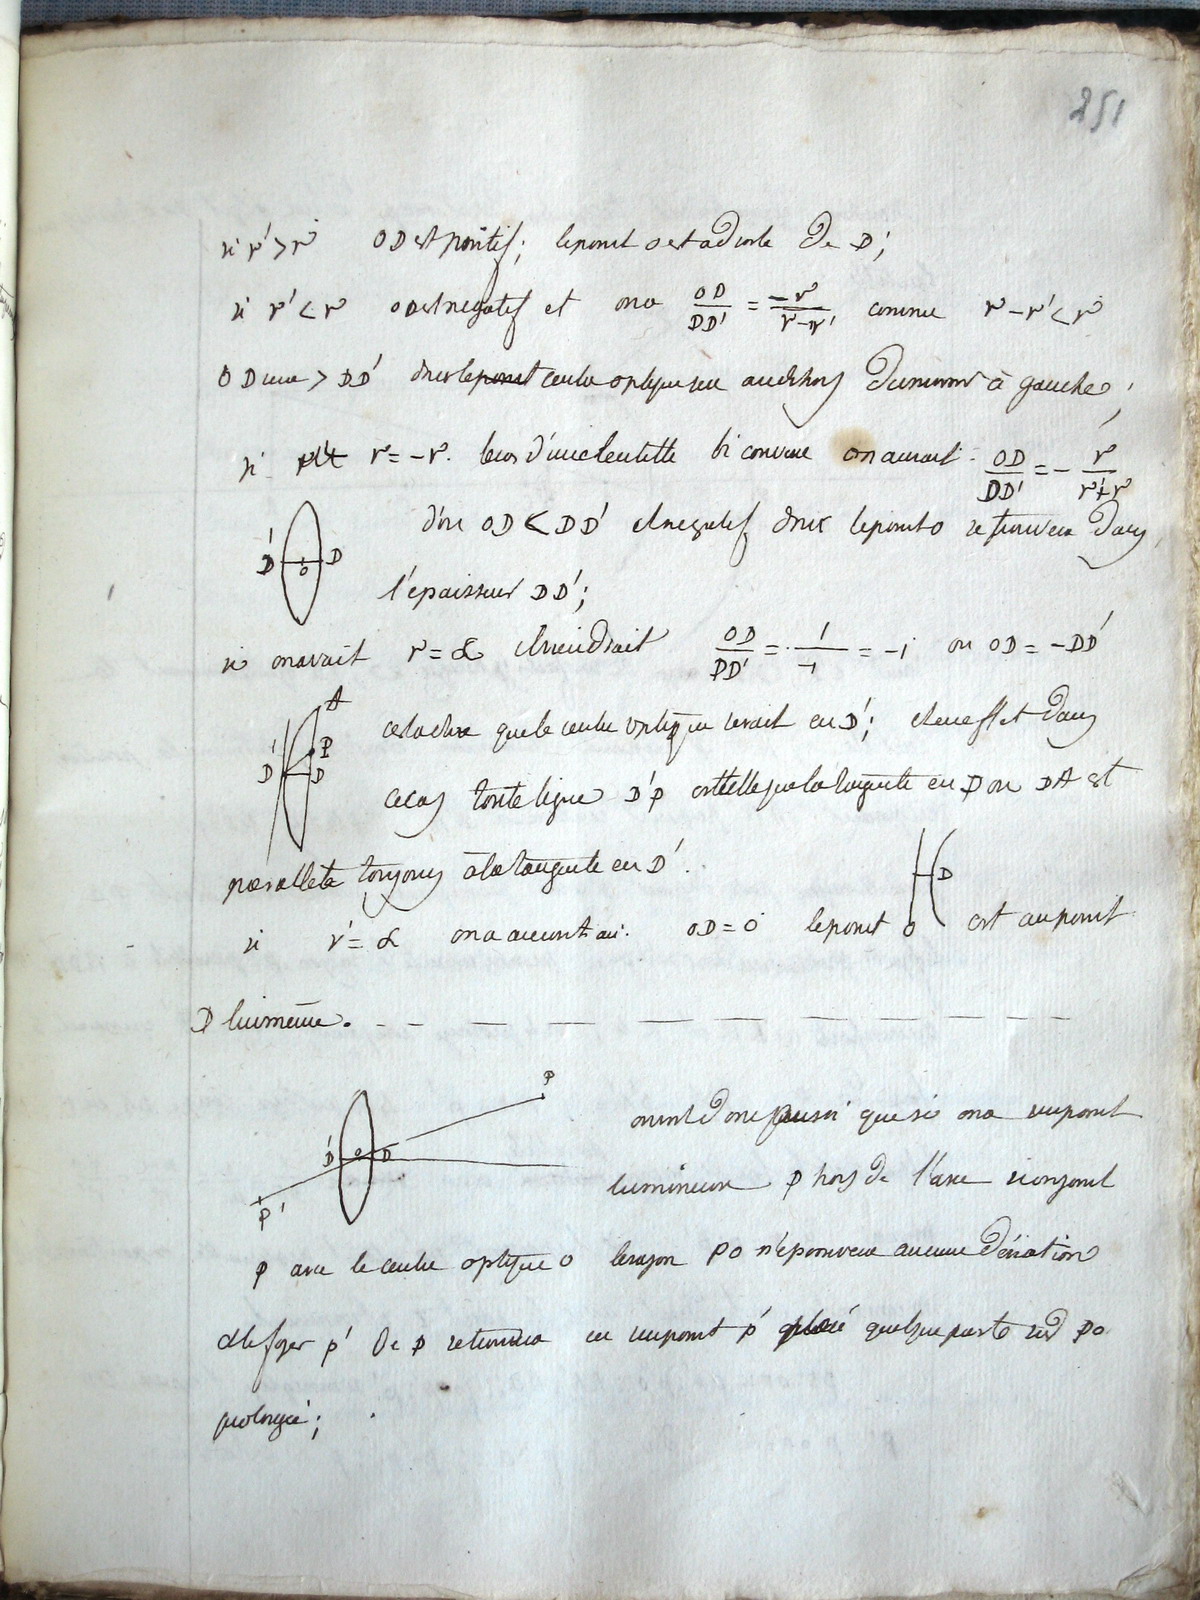 251
si r' > r OD est positif; le point o est a droite de D;
si r' < r OD est negatif et on a OD/DD' = -r/r-r' comme r-r' < r
OD sera > DD' donc le point centre optique sera au dehors du menisque à gauche;
si r = -r. le cas d'une lentille bi convexe on aurait OD/DD' = - r/r'+r
d'ou OD < DD' et negatif donc le point o se trouvera dans
D' o D
l'épaisseur DD';
si on avait r = ∝ il viendrait OD/DD' = 1/-1 = -1 ou OD = -DD'
A
cest a dire que le centre optique serait en D'; et en effet dans
P
D' D
ce cas toute ligne D'P est telle que la tangente en P ou DA est
parallele toujours à la tangente en D'.
D
si r' = ∝ on a OD = 0 le point o est au point
D lui même.
P
on voit donc aussi que si on a un point
D' o D
lumineux P hors de l'axe si on joint
P'
P avec le centre optique o le rayon PO n'éprouvera aucune déviation
et le foyer P' de P se trouvera en un point P' placé quelque part sur PO
prolongé;